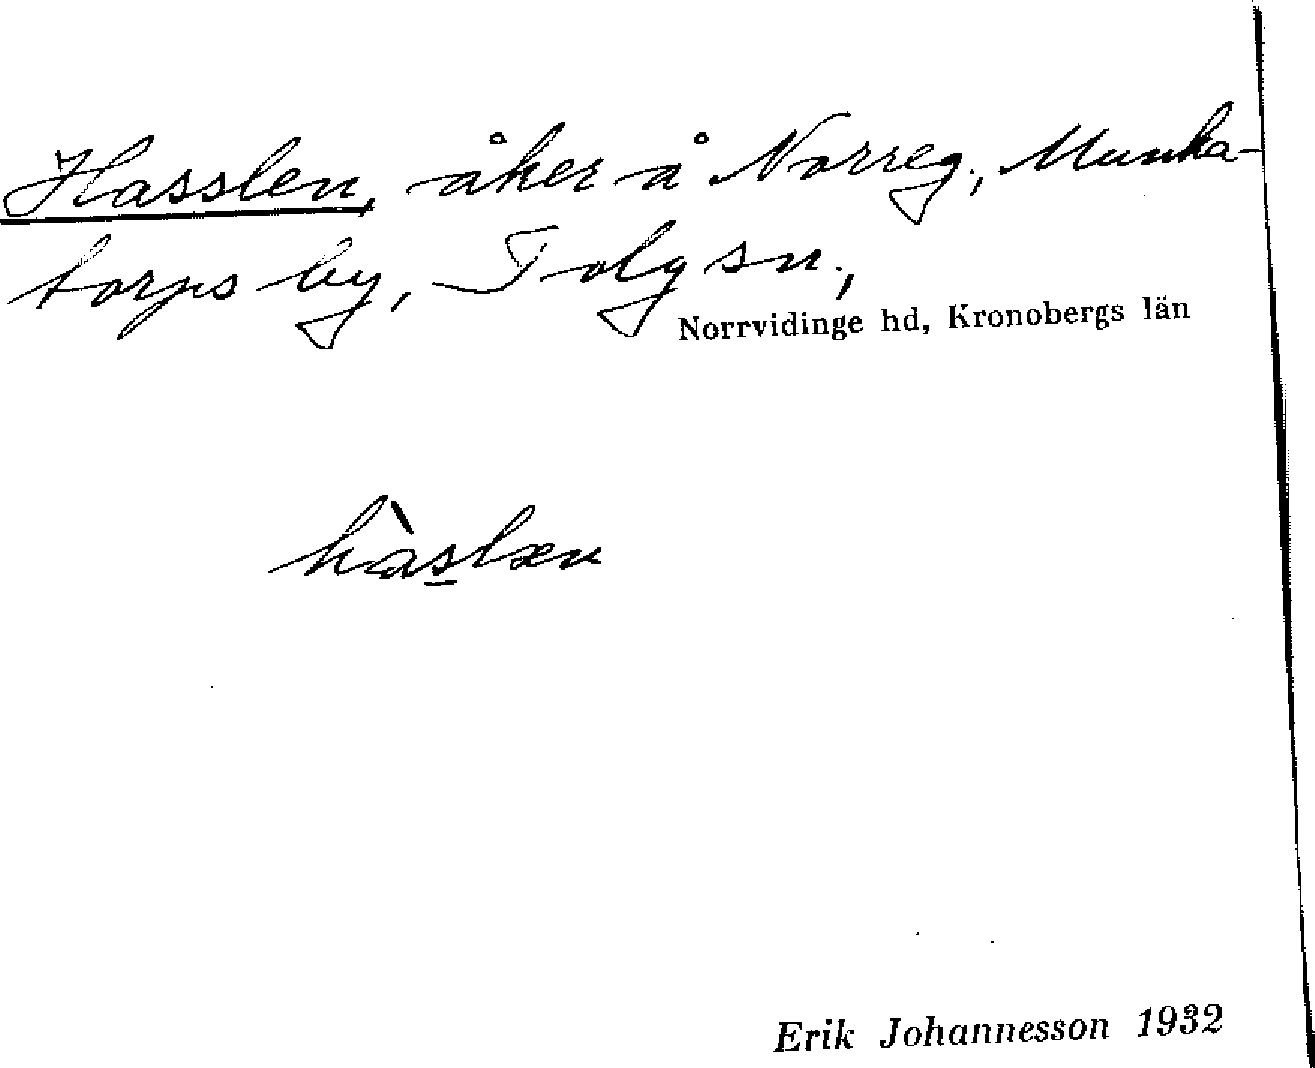 Hasslen, åker å Norreg., Munka-
torps by, Tolg sn.,
Norrvidinge hd, Kronobergs län
hàslæn
Erik Johannesson 1932